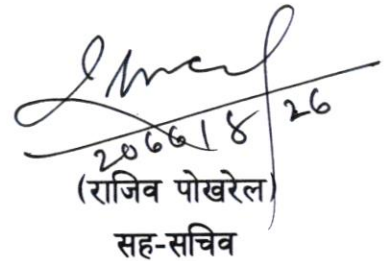 2066/8/26
(राजिव पोखरेल)
सह-सचिव